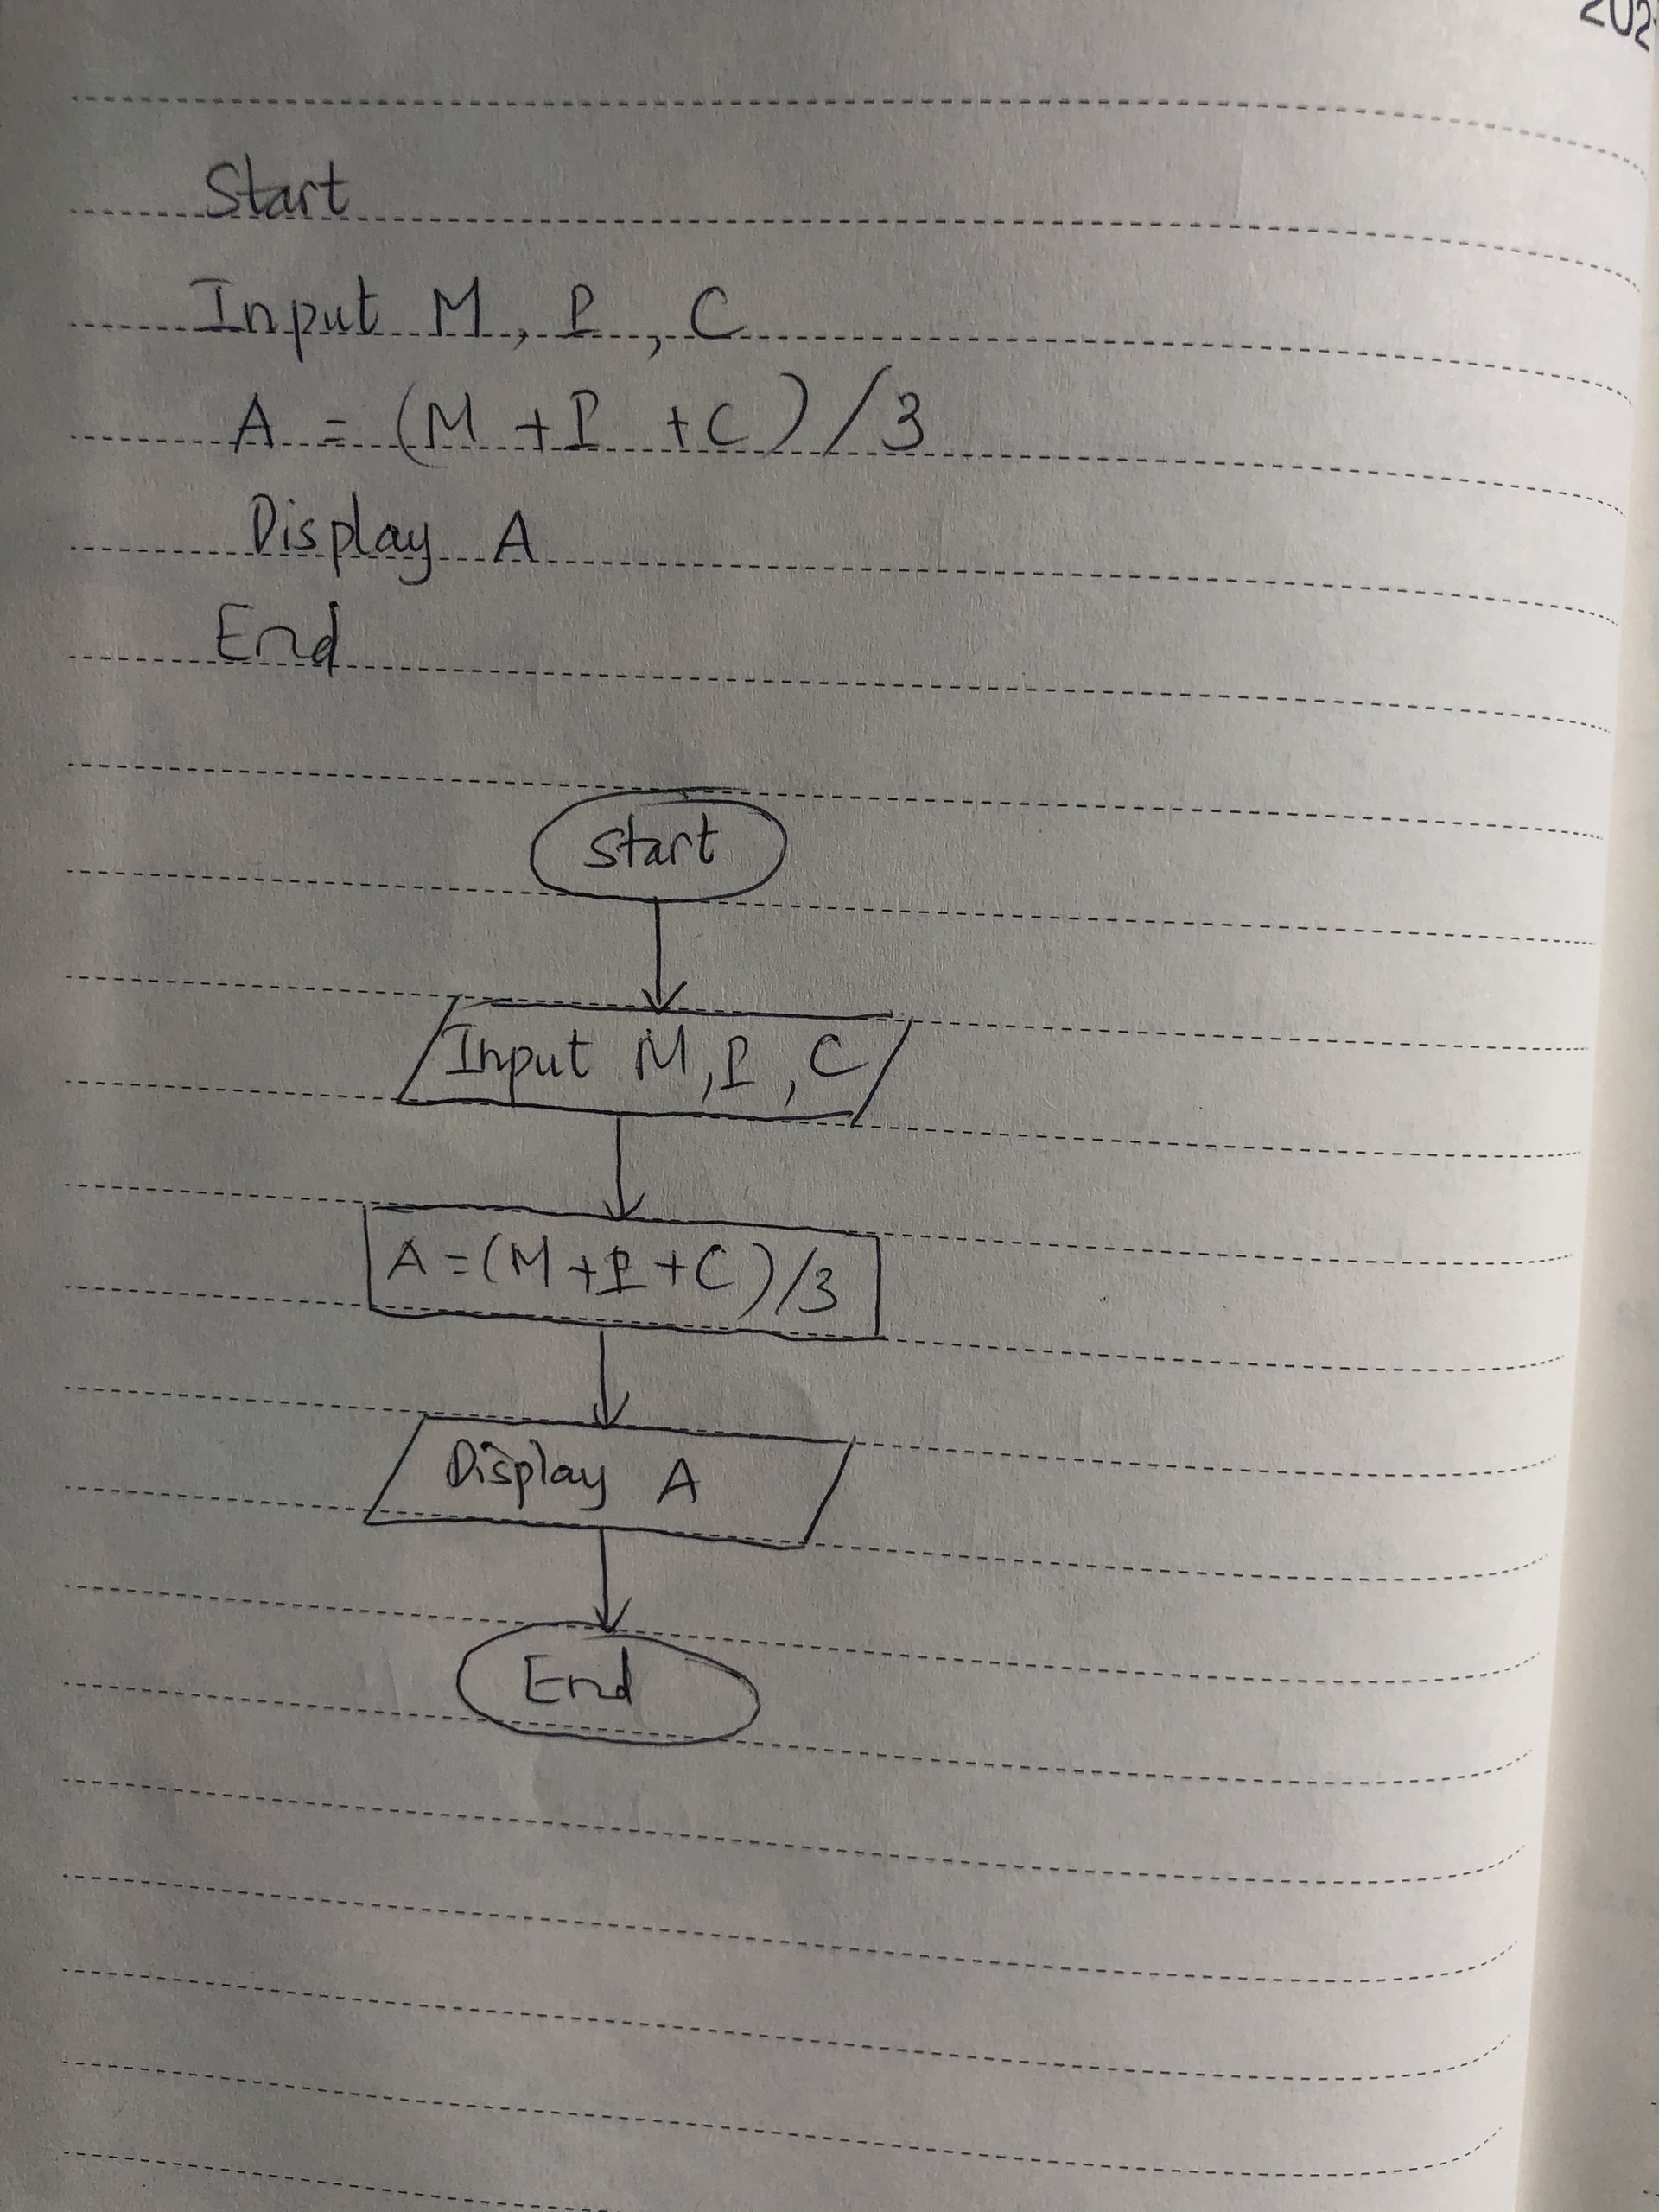 Start
Input M, P, C
A = (M + P + C) / 3
Display A
End
Start
Input M, P, C
A = (M + P + C) / 3
Display A
End